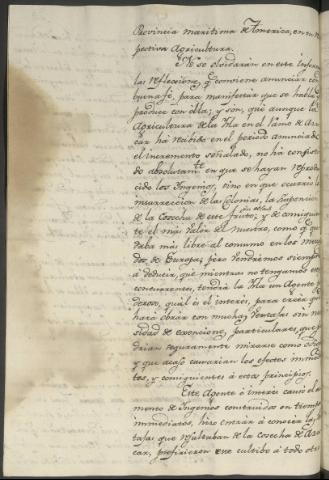 Provincia maritima de America, en su res
pectiva Agricultura.
No se olvidarán en este Informe
las reflecciones, q. conviene anunciar con
buena fé, para manifestar que se habla
produce con ella; y son, que aunque la
Agricultura de la Isla en el Ramo de Azu
car há recibido en el periodo anunciado
el incremento señalado, no há consisti
do absolutam.te en que se hayan reprodu
cido los Ingenios, sino en que ocurrió la
insurreccion de las Colonias, la suspension
de la Cosecha de este fruto, y de consiguien
te el más valor del nuestro, como q. que
daba más libre al consumo en los merca
dos de Europa; pero vendrémos siempre
á deducir, que mientras no tengamos
concurrentes, tendrá la Isla un Agente po
deroso, qual és el interés, para creer q.
hará obrar con muchas ventajas sin nece
sidad de exenciones particulares, que po
drian seguramente mirarse como
y que acaso causarian los efectos inmedia
tos, y consiguientes á estos principios.
Este Agente ó interés causó el au
mento de Ingenios construidos en tiempos
immediatos, hizo entrár á conocer las ven
tajas que resultaban de la cosecha de Azu
car, prefirieron ese cultibo á todo otro